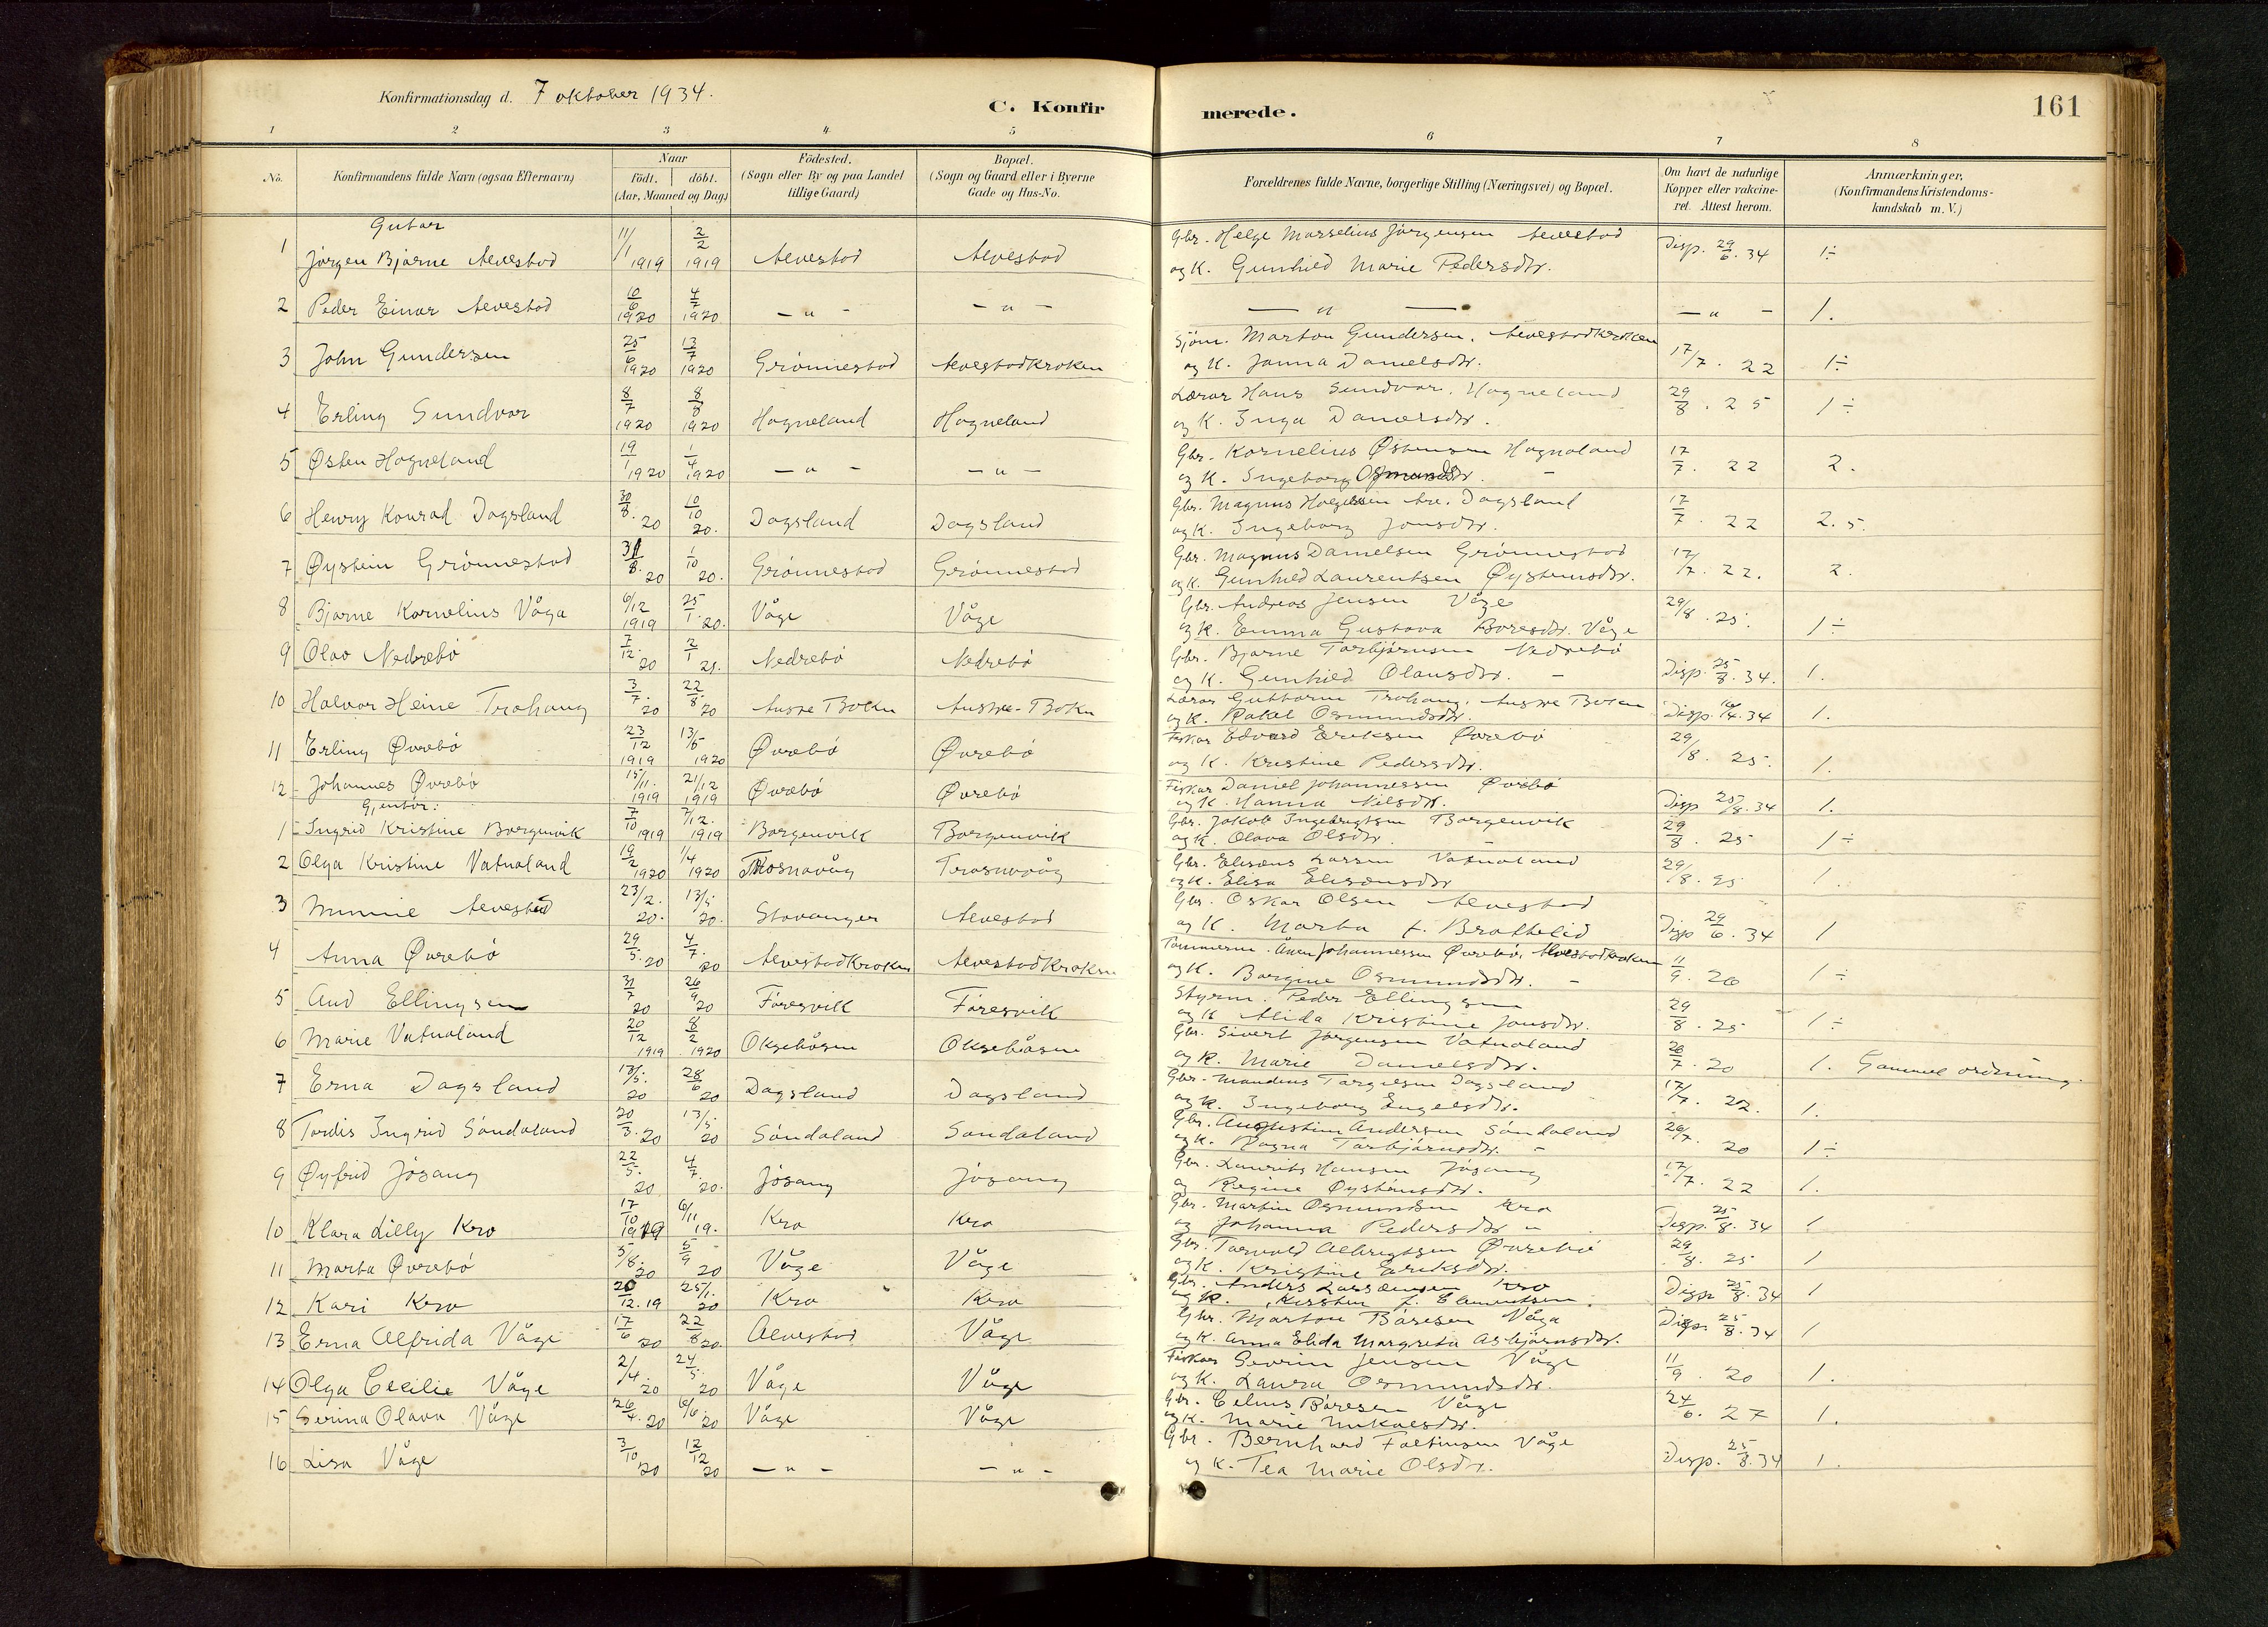 Konfirmationsdag d. 7 oktober 1934.
C. Konfirmerede.
161
1 2 3 4 5 6 7 8
No.
Konfirmandens fulde Navn (ogsaa Efternavn)
Naar
født. døbt.
(Aar, Maaned og Dag)
Födested.
(Sogn eller By og paa Landet
tillige Gaard)
Bopæl.
(Sogn og Gaard eller i Byerne
Gade og Hus-No.
Forældrenes fulde Navne, borgerlige Stilling (Næringsvei) og Bopæl.
Om havt de naturlige
Kopper eller vakcine-
ret. Attest herom.
Anmærkninger,
(Konfirmandens Kristendoms-
kundskab m. V.)
Gutar
1 Jørgen Bjarne Alvestad 11/1 1919 2/2 1919 Alvestad Alvestad Gbr. Helge Marselius Jørgensen Alvestad Disp. 29/6. 34 1÷
og K. Gunhild Marie Pedersdtr.
2 Peder Einar Alvestad 10/6 1920 4/7 1920 - " - - " - - " - - " - 1.
3 John Gundersen 25/6 1920 13/7 1920 Grönnestad Alvestadkroken Sjöm. Marton Gundersen, Alvestadkroken 17/7. 22 1÷
og K. Janna Danielsdtr.
4 Erling Sundvor 8/7 1920 8/8 1920 Hagneland Hagneland Lærar Hans Sundvor, Hagneland 29/8. 25 1÷
og K. Inga Danielsdtr.
5 Østen Hagneland 19/1 1920 1/4 1920 - " - - " - Gbr. Kornelius Østensen Hagnaland 17/7. 22 2.
og K. Ingeborg Osmundsdtr.
6 Henry Konrad Dagsland 30/8. 20 10/10 20. Dagsland Dagsland Gbr. Magnus Dagsland 17/7. 22 2.5.
og K. Ingeborg Jonsdtr.
7 Øystein Grönnestad 31/8. 20 1/10 20. Grönnestad Grönnestad Gbr. Magnus Danielsen Grönnestad 17/7. 22. 2.
og K. Gunhild Laurentsen Øysteinsdtr.
8 Bjarne Kornelius Våga 6/12 1919 25/1. 20. Våge Våge Gbr. Andreas Jensen Våge 29/8. 25. 1÷
og K. Emma Gustava Boresdtr. Våge
9 Olav Nedrebö 7/12. 20 2/1 21. Nedrebö Nedrebö Gbr. Bjarne Torbjörnsen Nedrebö Disp. 25/8. 34. 1.
og K. Gunhild Olausdtr. -
10 Halvor Heine Trohaug 3/7. 20 22/8. 20 Austre Bokn Austre-Bokn Lærar Guttorm Trohaug, Austre Bokn Disp. 34 1.
og K. Rakel Osmundsdtr.
11 Erling Øvrebö 23/12 1919 13/5 1920 Øvrebö Øvrebö Fiskar Edvard Eriksen Øvrebö 29/8. 25. 1.
og K. Kristine Pedersdtr.
12 Johannes Øvrebö 15/11. 1919 21/12 1919 Øvrebö Øvrebö Fiskar Daniel Johannessen Øvrebö Disp 25/8. 34 1.
og K. Hanna Nilsdtr.
Gjentor:
1 Ingrid Kristine Borgenvik 7/10 1919 7/12. 1919 Borgenvik Borgenvik Gbr. Jakob Ingebrigtsen Borgenvik 29/8. 25 1÷
og K. Olava Olsdtr.
2 Olga Kristine Vatnaland 19/2 1920 1/4 1920 Trosnavåg Trosnavåg Gbr. Eliseus Larsen Vatnaland 29/8. 25 1.
og K. Elisa Eliseusdtr
3 Minnie Alvestad 23/2. 20. 13/5 20. Stavanger Alvestad Gbr. Oskar Olsen Alvestad Disp 29/6. 34 1
og K. Marta f. Brattelid
4 Anna Øvrebö 29/5. 20 4/7. 20 Alvestadkroken Alvestadkroken Tömmerm. Johannessen Øvrebö, Alvestadkroken 11/9. 20 1÷
og K. Borgine Osmundsdtr. -
5 Aud Ellingsen 31/7 20 26/9 20 Føresvik Føresvik Styrm. Peder Ellingsen 29/8. 25 1÷
og K Alida Kristine Jonsdtr.
6 Marie Vatnaland 20/12 1919 8/2 1920 Oksebåsen Oksebåsen Gbr. Sivert Jørgensen Vatnaland 20 1. Gammel ordning.
og K. Marie Danielsdtr.
7 Erna Dagsland 13/5. 20 28/6 20 Dagsland Dagsland Gbr. Mandius Torgilsen Dagsland 17/7. 22. 1.
og K. Ingeborg Engelsdtr.
8 Tordis Ingrid Söndaland 20/3. 20 13/5 20 Söndaland Sandaland Gbr. Augustin Andersen Söndaland 20 1÷
og K. Ragna Torbjörnsdtr. -
9 Øyfrid Jösang 22/5. 20 4/7. 20. Jösang Jösang Gbr. Laurits Hansen Jösang 17/7. 22 1.
og Regine Øysteinsdtr.
10 Klara Lilly Kro 17/10 1919 6/11 19. Kro Kro Gbr. Martin Osmundsen Kro Disp. 25/8. 34 1
og Johanna Pedersdtr "
11 Marta Øvrebö 5/8. 20 5/9 20 Våge Våge Gbr. Torvald Albrigtsen Øvrebö 29/8. 25 1
og K. Kristine Eriksdtr.
12 Kari Kro 20/12. 19 25/1. 20 Kro Kro Gbr. Anders Kro Disp 25/8. 34 1
og K. Kirsten f.
13 Erna Alfrida Våge 17/6 20 22/8 20. Alvestad Våge Gbr. Marton Båresen Våga Disp. 25/8. 34 1
og K. Anna Elida Margreta Asbjörnsdtr.
14 Olga Cecilie Våge 2/4. 20 24/5. 20 Våge Våge Fiskar Sevrin Jensen Våge 11/9. 20 1.
og K. Laura Osmundsdtr.
15 Serina Olava Våge 26/4. 20 6/6. 20 Våge Våge Gbr. Celius Båresen Våge 24/6. 27 1.
og K. Marie Mikalsdtr.
16 Lisa Våge 3/10 20 12/12 20 - " - - " - Gbr. Bernhard Faltinsen Våge Disp. 25/8. 34 1.
og K. Tea Marie Olsdtr.